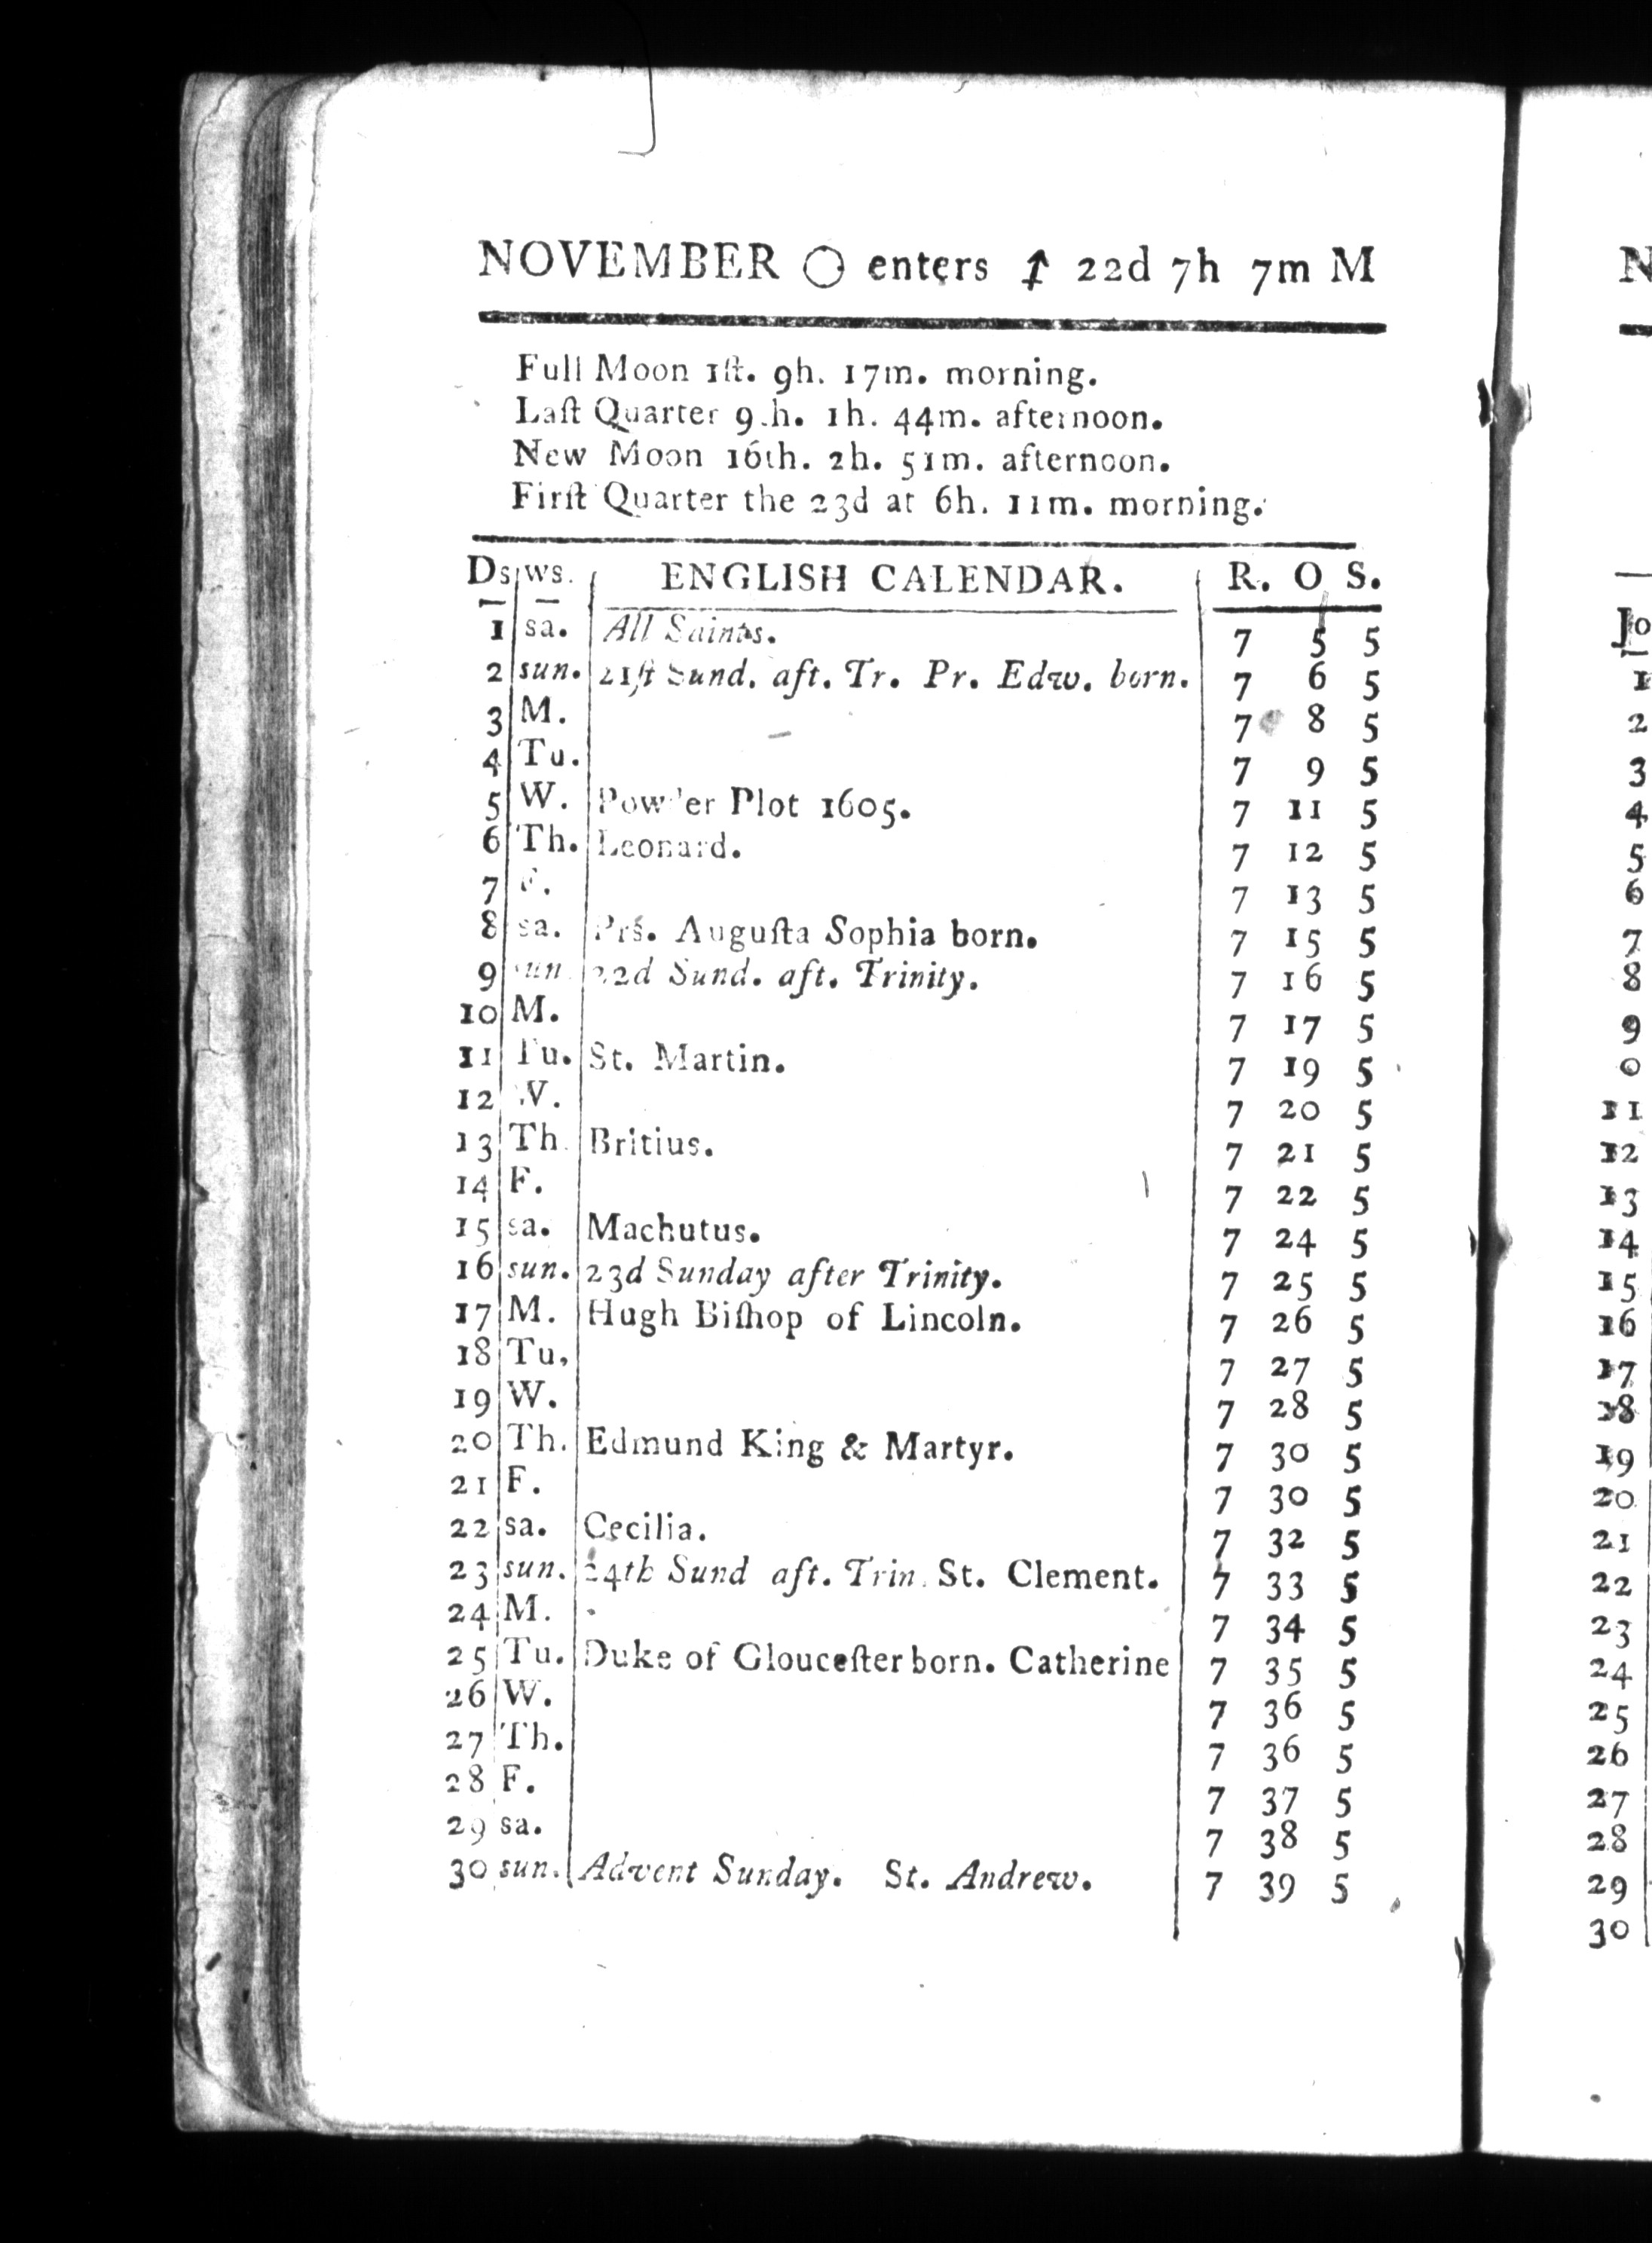 NOVEMBER ○ enters ♐ 22d 7h 7m M
Full Moon 1ſt. 9h. 17m. morning.
Laſt Quarter 9.h. 1h. 44m. afternoon.
New Moon 16th. 2h. 51m. afternoon.
Firſt Quarter the 23d at 6h. 11m. morning.
Ds ws. ENGLISH CALENDAR. R. O S.
1 sa. All Saints. 7 5 5
2 sun. 21ſt Sund. aft. Tr. Pr. Edw. born. 7 6 5
3 M. 7 8 5
4 Tu. 7 9 5
5 W. Powder Plot 1605. 7 11 5
6 Th. Leonard. 7 12 5
7 F. 7 13 5
8 sa. Prs. Auguſta Sophia born. 7 15 5
9 sun. 22d Sund. aft. Trinity. 7 16 5
10 M. 7 17 5
11 Tu. St. Martin. 7 19 5
12 W. 7 20 5
13 Th. Britius. 7 21 5
14 F. 7 22 5
15 sa. Machutus. 7 24 5
16 sun. 23d Sunday after Trinity. 7 25 5
17 M. Hugh Biſhop of Lincoln. 7 26 5
18 Tu, 7 27 5
19 W. 7 28 5
20 Th. Edmund King & Martyr. 7 30 5
21 F. 7 30 5
22 sa. Cecilia. 7 32 5
23 sun. 24th Sund aft. Trin. St. Clement. 7 33 5
24 M. 7 34 5
25 Tu. Duke of Glouceſter born. Catherine 7 35 5
26 W. 7 36 5
27 Th. 7 36 5
28 F. 7 37 5
29 sa. 7 38 5
30 sun. Advent Sunday. St. Andrew. 7 39 5
N
Jo
1
2
3
4
5
6
7
8
9
0
11
12
13
14
15
16
17
18
19
20
21
22
23
24
25
26
27
28
29
30